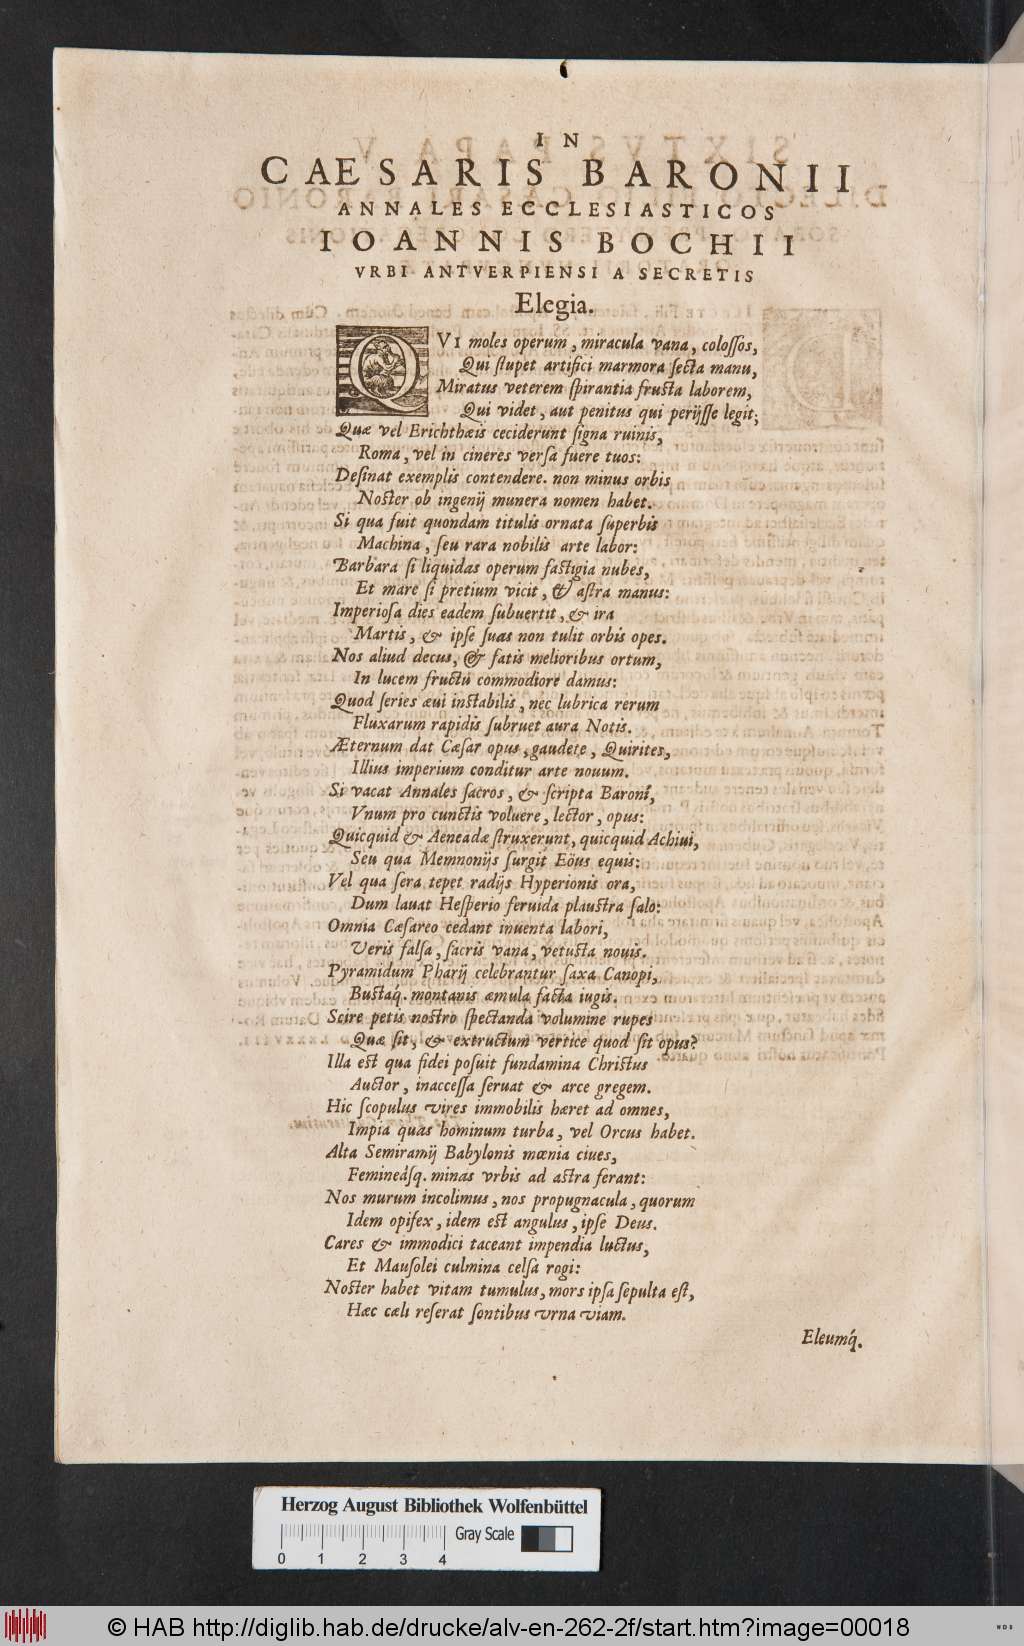 IN
CAESARIS BARONII
ANNALES ECCLESIASTICOS
IOANNIS BOCHII
VRBI ANTVERPIENSI A SECRETIS
Elegia.
QVI moles operum, miracula vana, colossos,
Qui stupet artifici marmora secta manu,
Miratus veterem spirantia frusta laborem,
Qui videt, aut penitus qui perijsse legit;
Quæ vel Erichthæis ceciderunt signa ruinis,
Roma, vel in cineres versa fuere tuos:
Desinat exemplis contendere. non minus orbis
Noster ob ingenij munera nomen habet.
Si qua fuit quondam titulis ornata superbis
Machina, seu rara nobilis arte labor:
Barbara si liquidas operum fastigia nubes,
Et mare si pretium vicit, & astra manus:
Imperiosa dies eadem subuertit, & ira
Martis, & ipse suas non tulit orbis opes.
Nos aliud decus, & fatis melioribus ortum,
In lucem fructu commodiore damus:
Quod series æui instabilis, nec lubrica rerum
Fluxarum rapidis subruet aura Notis.
Æternum dat Cæsar opus, gaudete, Quirites,
Illius imperium conditur arte nouum.
Si vacat Annales sacros, & scripta Baronî,
Vnum pro cunctis voluere, lector, opus:
Quicquid & Aeneadæ struxerunt, quicquid Achiui,
Seu qua Memnonijs surgit Eöus equis:
Vel qua sera tepet radijs Hyperionis ora,
Dum lauat Hesperio feruida plaustra salo:
Omnia Cæsareo cedant inuenta labori,
Veris falsa, sacris vana, vetusta nouis.
Pyramidum Pharij celebrantur saxa Canopi,
Bustaq́. montanis æmula facta iugis.
Scire petis nostro spectanda volumine rupes
Quæ sit, & extructum vertice quod sit opus?
Illa est qua fidei posuit fundamina Christus
Auctor, inaccessa seruat & arce gregem.
Hic scopulus vires immobilis hæret ad omnes,
Impia quas hominum turba, vel Orcus habet.
Alta Semiramij Babylonis mœnia ciues,
Femineásq. minas vrbis ad astra ferant:
Nos murum incolimus, nos propugnacula, quorum
Idem opifex, idem est angulus, ipse Deus.
Cares & immodici taceant impendia luctus,
Et Mausolei culmina celsa rogi:
Noster habet vitam tumulus, mors ipsa sepulta est,
Hæc cæli reserat sontibus vrna viam.
Eleumq́.
Herzog August Bibliothek Wolfenbüttel
0 1 2 3 4 Gray Scale
© HAB http://diglib.hab.de/drucke/alv-en-262-2f/start.htm?image=00018